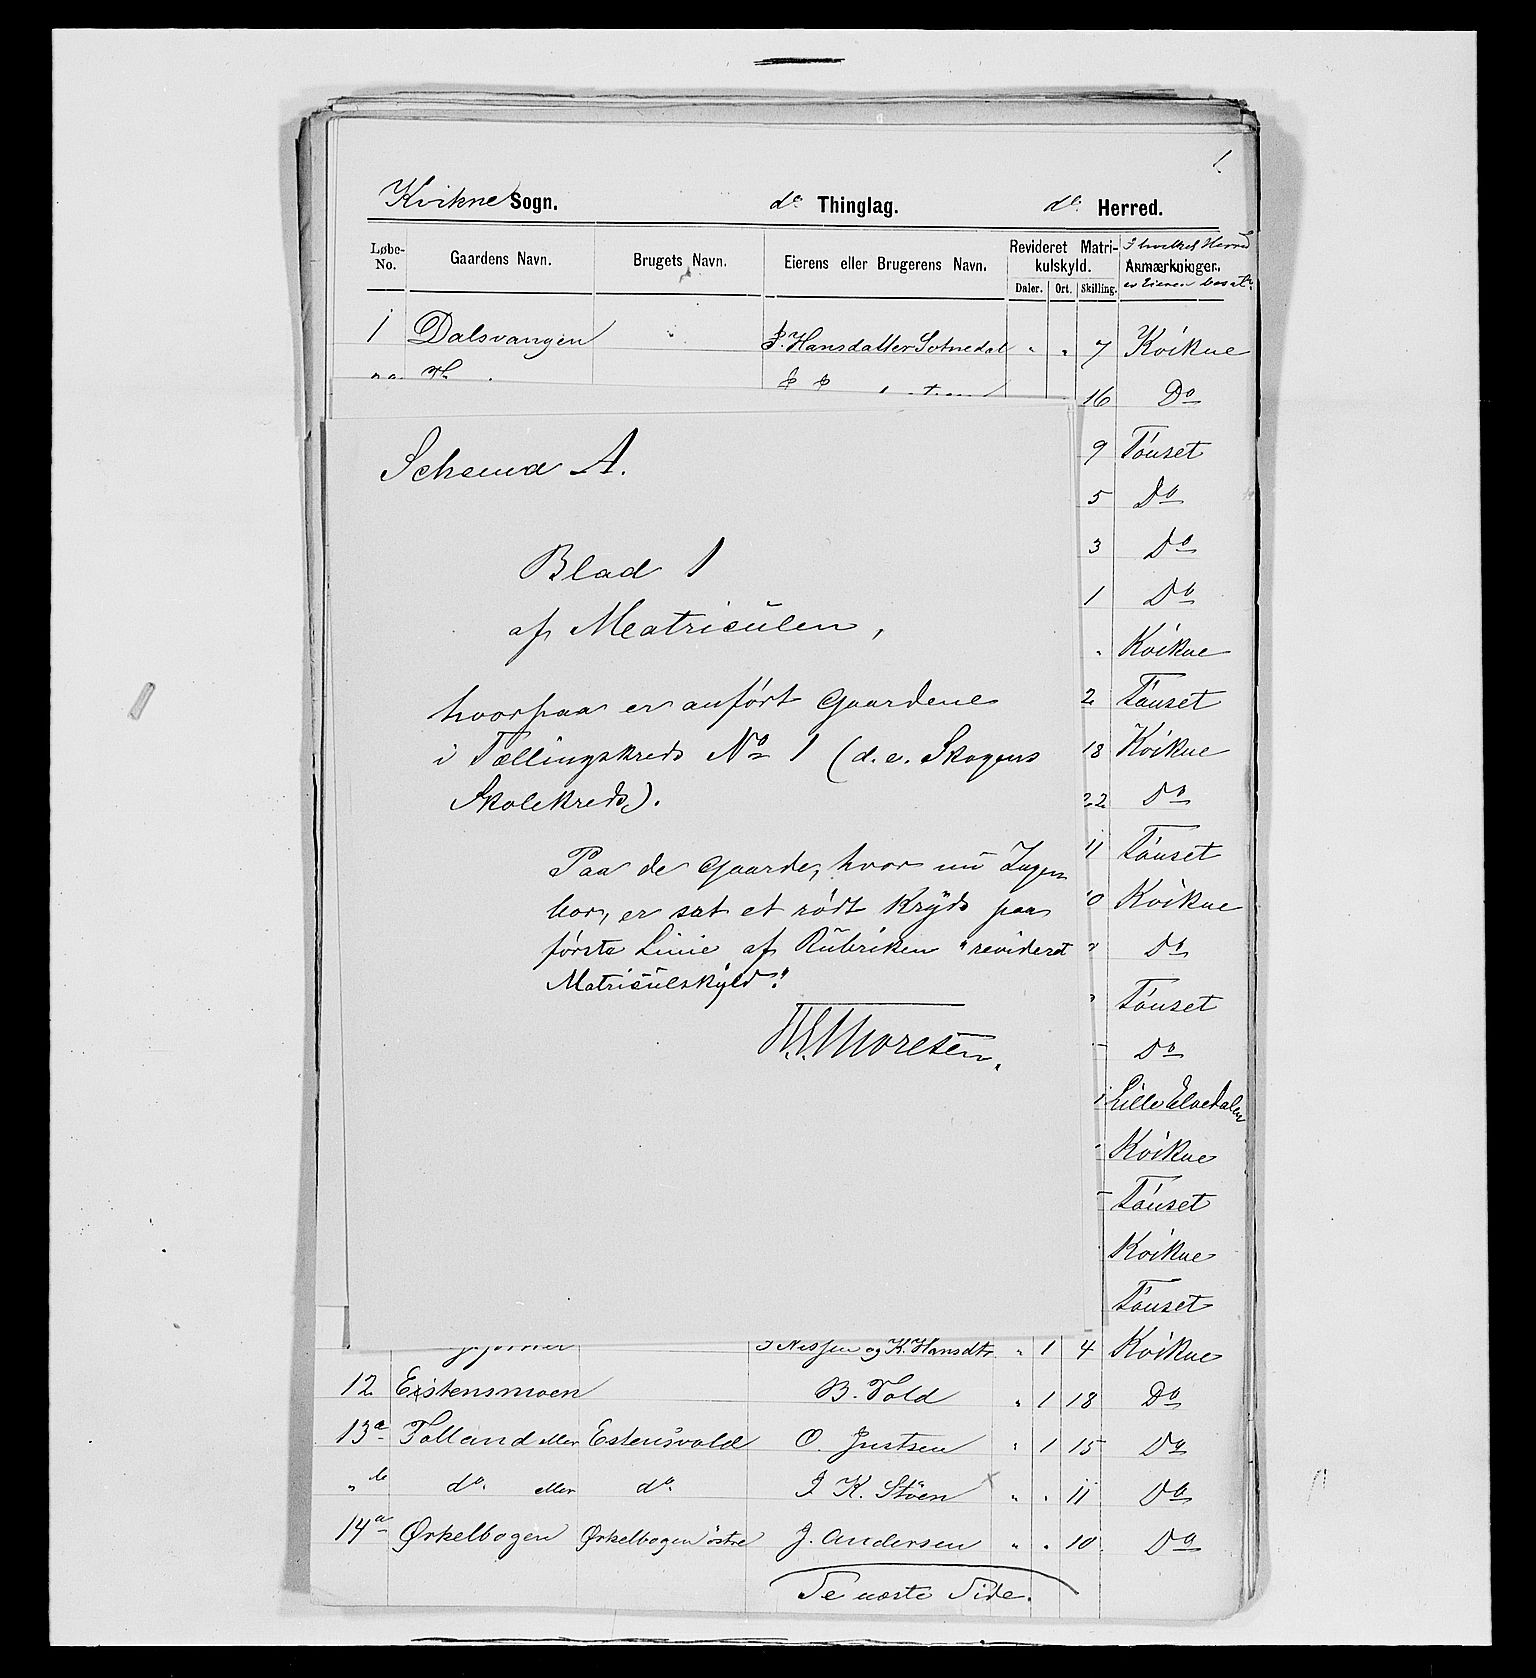 1.
Kvikne Sogn. do Thinglag. do. Herred.
Løbe-No. Gaardens Navn. Brugets Navn. Eierens eller Brugerens Navn. Revideret Matrikulskyld. I hvilket Herred
Anmærkninger.
er Eieren bosat.
Daler. Ort. Skilling.
1 Dalsvangen " Hansdatter Sotnedal " " 7 Kvikne
16 Do
9 Tönset
5 Do
3 Do
1 Do
" Kvikne
2 Tönset
18 Kvikne
22 Do
11 Tönset
10 Kvikne
" Do
" Tönset
Do
Lille Elvedalen
Kvikne
Tönset
Kvikne
Tönset
Schema A.
Blad 1
af Matriculen,
hvorpaa er anfört Gaardene
i Tællingskreds No 1 (d. e. Skogens
Skolekreds).
Paa de Gaarde, hvor nu Ingen
bor, er sat et rödt Kryds paa
förste Linie af Rubriken "revideret
Matriculskyld".
Thoresen.
Nissen og K. Hansdtr. " 1 4 Kvikne
12 Estensmoen B. Vold " 1 18 Do
13a Tolland eller Estensvold O. Justsen " 1 15 Do
" b do. eller do. I K. Stöen " " 11 Do
14a Ørkelbogen Ørkelbogen östre J. Andersen " " 10 Do
Se næste Side.